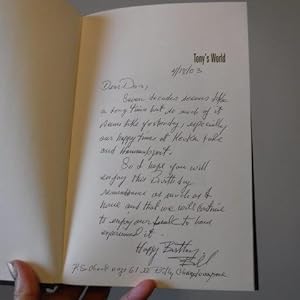 Tony's World
4/18/03
Dear Don,
Seven decades seems like
a long time but so much of it
seems like yesterday, especially
our happy times at Keuka Lake
and Hammondsport.
So I hope you will
enjoy this Birthday
remembrance as much as I
have and that we will continue
to enjoy our to have
experienced it.
Happy Birthday
Bill
P.S. Check page 61